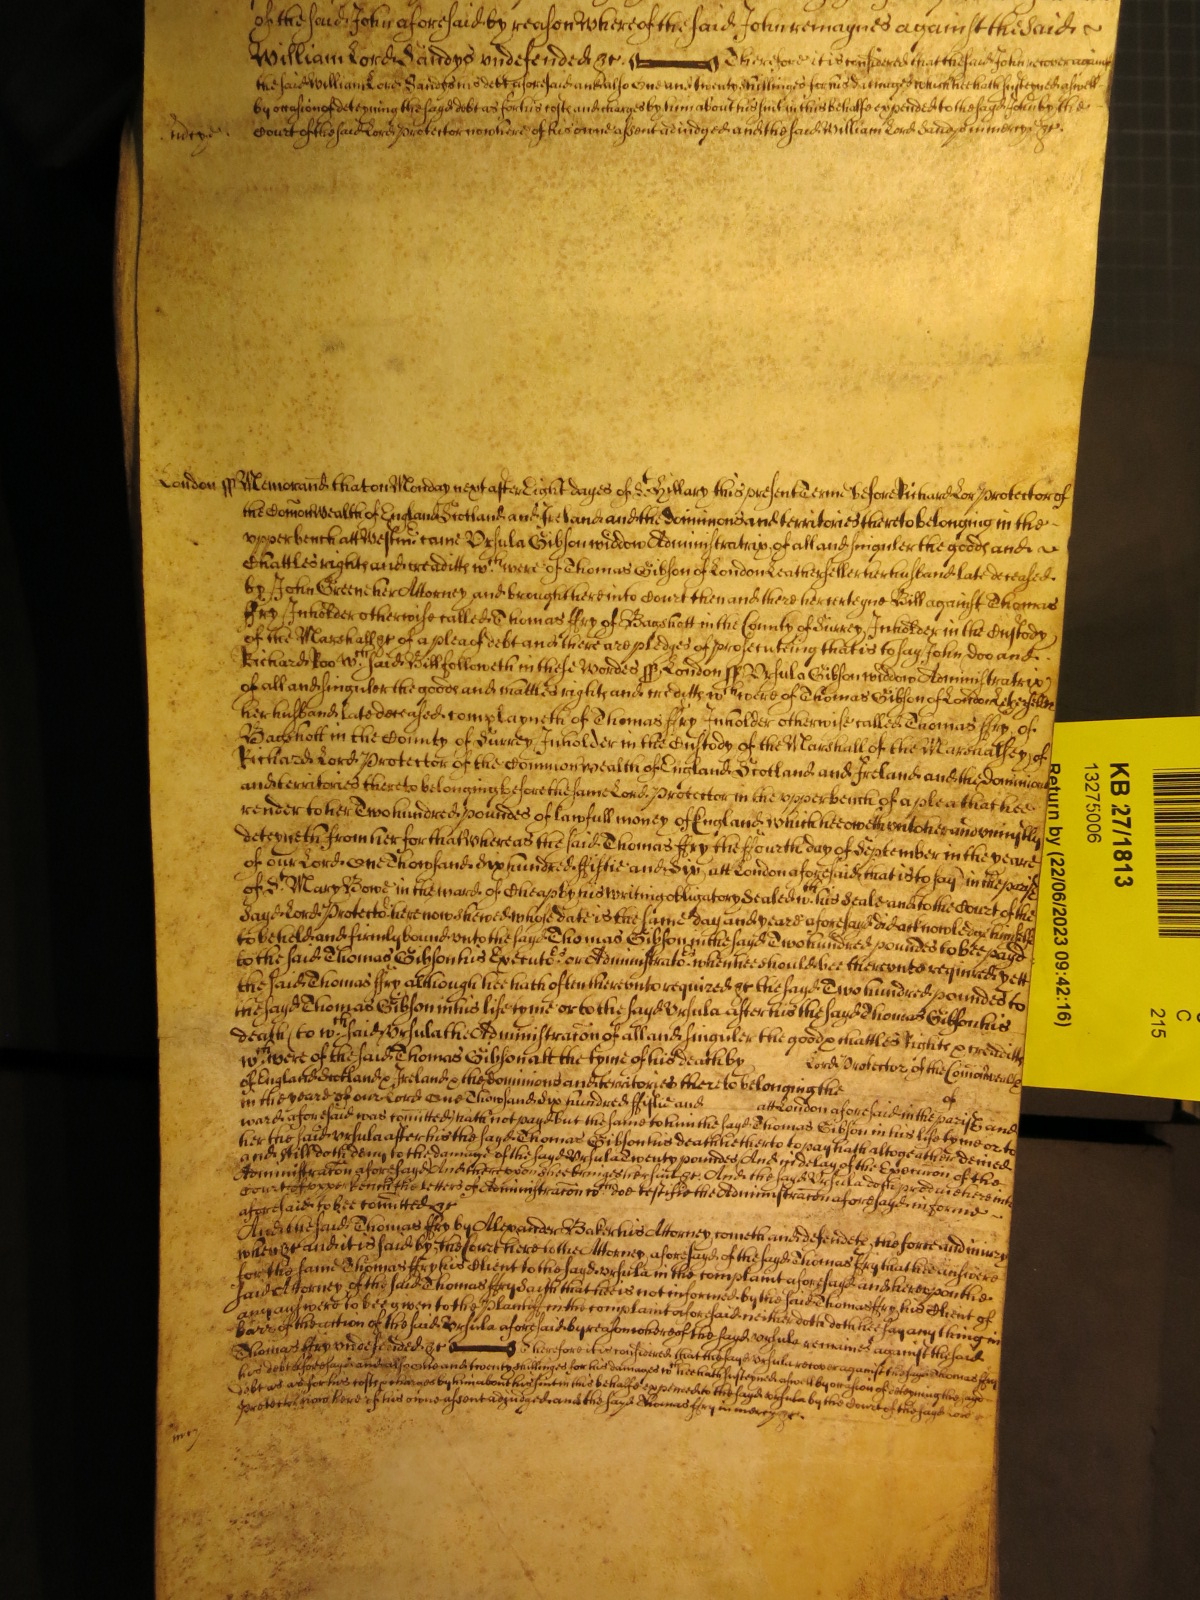 of the said John aforesaid by reason whereof the said John remaynes against the said
William Lord Sandys undefended &c. Therefore it is considered that the said John recover against
the said William Lord Sandys his debt aforesaid and also one and twenty shillinges for his damages which he hath susteyned aswell
by occasion of deteyning the sayd debt as for his costs and charges by him about his suit in this behalfe expended to the sayd John by the
mercy Court of the said Lord Protector now here of his owne assent adiudged and the said William Lord Sandys in mercy &c.
London ss Memorand that on Monday next after Eight dayes of St Hillary this present Terme before Richard Lord Protector of
the Comonwealth of England Scotland and Ireland and the dominions and territories thereto belonging in the
upper bench att Westmr came Ursula Gibson widdow Administratrix of all and singuler the goods and
Chattles rights and creditts wch were of Thomas Gibson of London Leatherseller her husband late deceased
by John Greene her Attorney and brought here into Court then and there her certeyne Bill against Thomas
ffry Inholder otherwise called Thomas ffry of Bagshott in the County of Surrey Inholder in the Custody
of the Marshall &c of a plea of debt and there are pledges of prosecuteing that is to say John Doo and
Richard Roo wch said Bill followeth in these wordes ss London ss Ursula Gibson widdow Administratrix
of all and singuler the goods and chattles rights and creditts wch were of Thomas Gibson of London Leatherseller
her husband late deceased complayneth of Thomas ffry Inholder otherwise called Thomas ffry of
Bagshott in the County of Surrey Inholder in the Custody of the Marshall of the Marshalsey of
Richard Lord Protector of the Common wealth of England Scotland and Ireland and the dominions
and territories thereto belonging before the same Lord Protector in the upper bench of a plea that hee
render to her Two hundred pounds of lawfull money of England which hee oweth unto her and uniustly
deteyneth from her for that Whereas the said Thomas ffry the ffourth day of September in the yeare
of our Lord One Thowsand Six hundred ffiftie and Six att London aforesaid that is to say in the parish
of St Mary Bowe in the ward of Cheap by his writing obligatory Sealed wth his Seale and to the Court of the
sayd Lord Protector here now shewed whose date is the same day and yeare aforesayd did acknowledge himselfe
to be held and firmly bound unto the sayd Thomas Gibson in the sayd Two hundred poundes to bee payd
to the said Thomas Gibson his Executors or Administrators when hee should bee thereunto required yett
the said Thomas ffry although hee hath often thereunto required &c the sayd Two hundred poundes to
the sayd Thomas Gibson in his life tyme or to the sayd Ursula after his the sayd Thomas Gibson his
death (to wch said Ursula the Administracon of all and singuler the goods chattles Rights & creditts
wch were of the said Thomas Gibson att the tyme of his death by Lord Protector of the Comonwealth
of England Scotland & Ireland & the dominions and territories thereto belonging the of
in the yeare of our Lord One Thowsand Six hundred ffiftie and att London aforesaid in the parish and
ward aforesaid was comitted) hath not payd but the same to him the sayd Thomas Gibson in his life tyme or to
her the said Ursula after his the sayd Thomas Gibson his death hetherto to pay hath altogeather denied
and still doth deny to the damage of the sayd Ursula Twenty pounds And in delay of the Execution of the
Administracon aforesayd And thereupon shee bringes her suit &c. And the sayd Ursula doth produce here into
Court of upper bench the letters of Administracon wch doe testifie the Administracon aforesayd in forme
aforesaid to bee comitted &c
And the said Thomas ffry by Alexander Baker his Attorney cometh and defendeth the force and iniury
when &c and it is said by the Court here to the Attorney aforesayd of the sayd Thomas ffry that hee answere
for the same Thomas ffry his Client to the sayd Ursula in the complaint aforesayd and hereupon the
said Attorney of the said Thomas ffry saith that hee is not informed by the said Thomas ffry his Client of
any answere to bee given to the Plaintiff in the complaint aforesaid neither doth doth hee say any thing in
barr of the action of the said Ursula aforesaid by reason whereof the sayd Ursula remaines against the said
Thomas ffry undefended &c Therefore it is considered that the sayd Ursula recover against the sayd Thomas ffry
his debt aforesayd and also one and twenty shillinges for his damages wch hee hath susteyned aswell by occasion of deteyning the sayd
debt as for his costs & charges by him about his suit in this behalfe expended to the sayd Ursula by the Court of the sayd Lord
Protector now here of his owne assent adiudged and the sayd Thomas ffry in mercy &c.
mercy
KB 27/1813
13275006
Return by (22/06/2023 09:42:16)
C
215